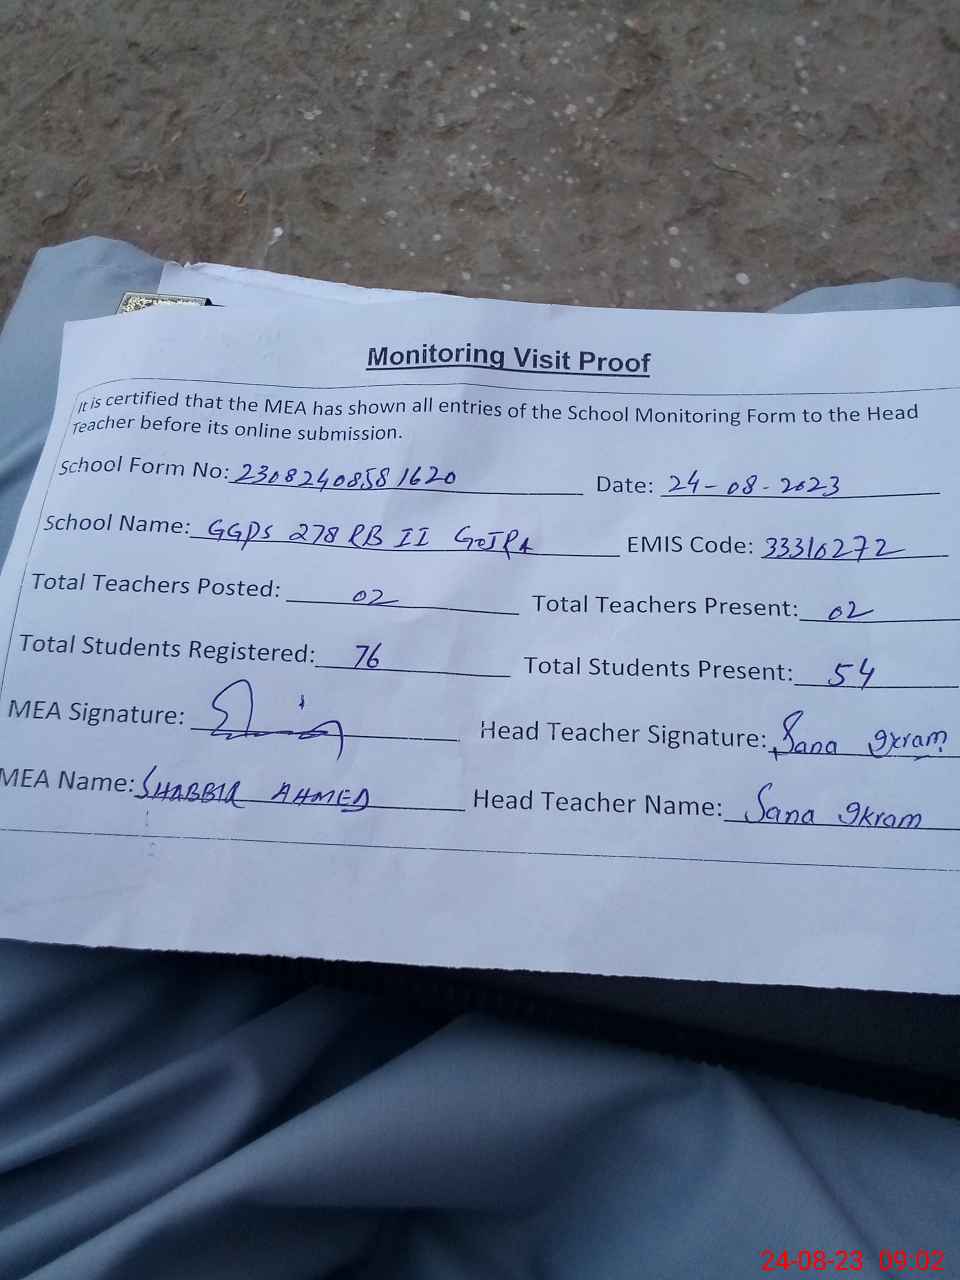 Monitoring Visit Proof
It is certified that the MEA has shown all entries of the School Monitoring Form to the Head
Teacher before its online submission.
School Form No: 2308240858 1620 Date: 24-08-2023
School Name: GGPS 278 RB II GOJRA EMIS Code: 33310272
Total Teachers Posted: 02 Total Teachers Present: 02
Total Students Registered: 76 Total Students Present: 54
MEA Signature: Head Teacher Signature: Sana Ikram
MEA Name: SHABBIR AHMED Head Teacher Name: Sana Ikram
24-08-23 09:02